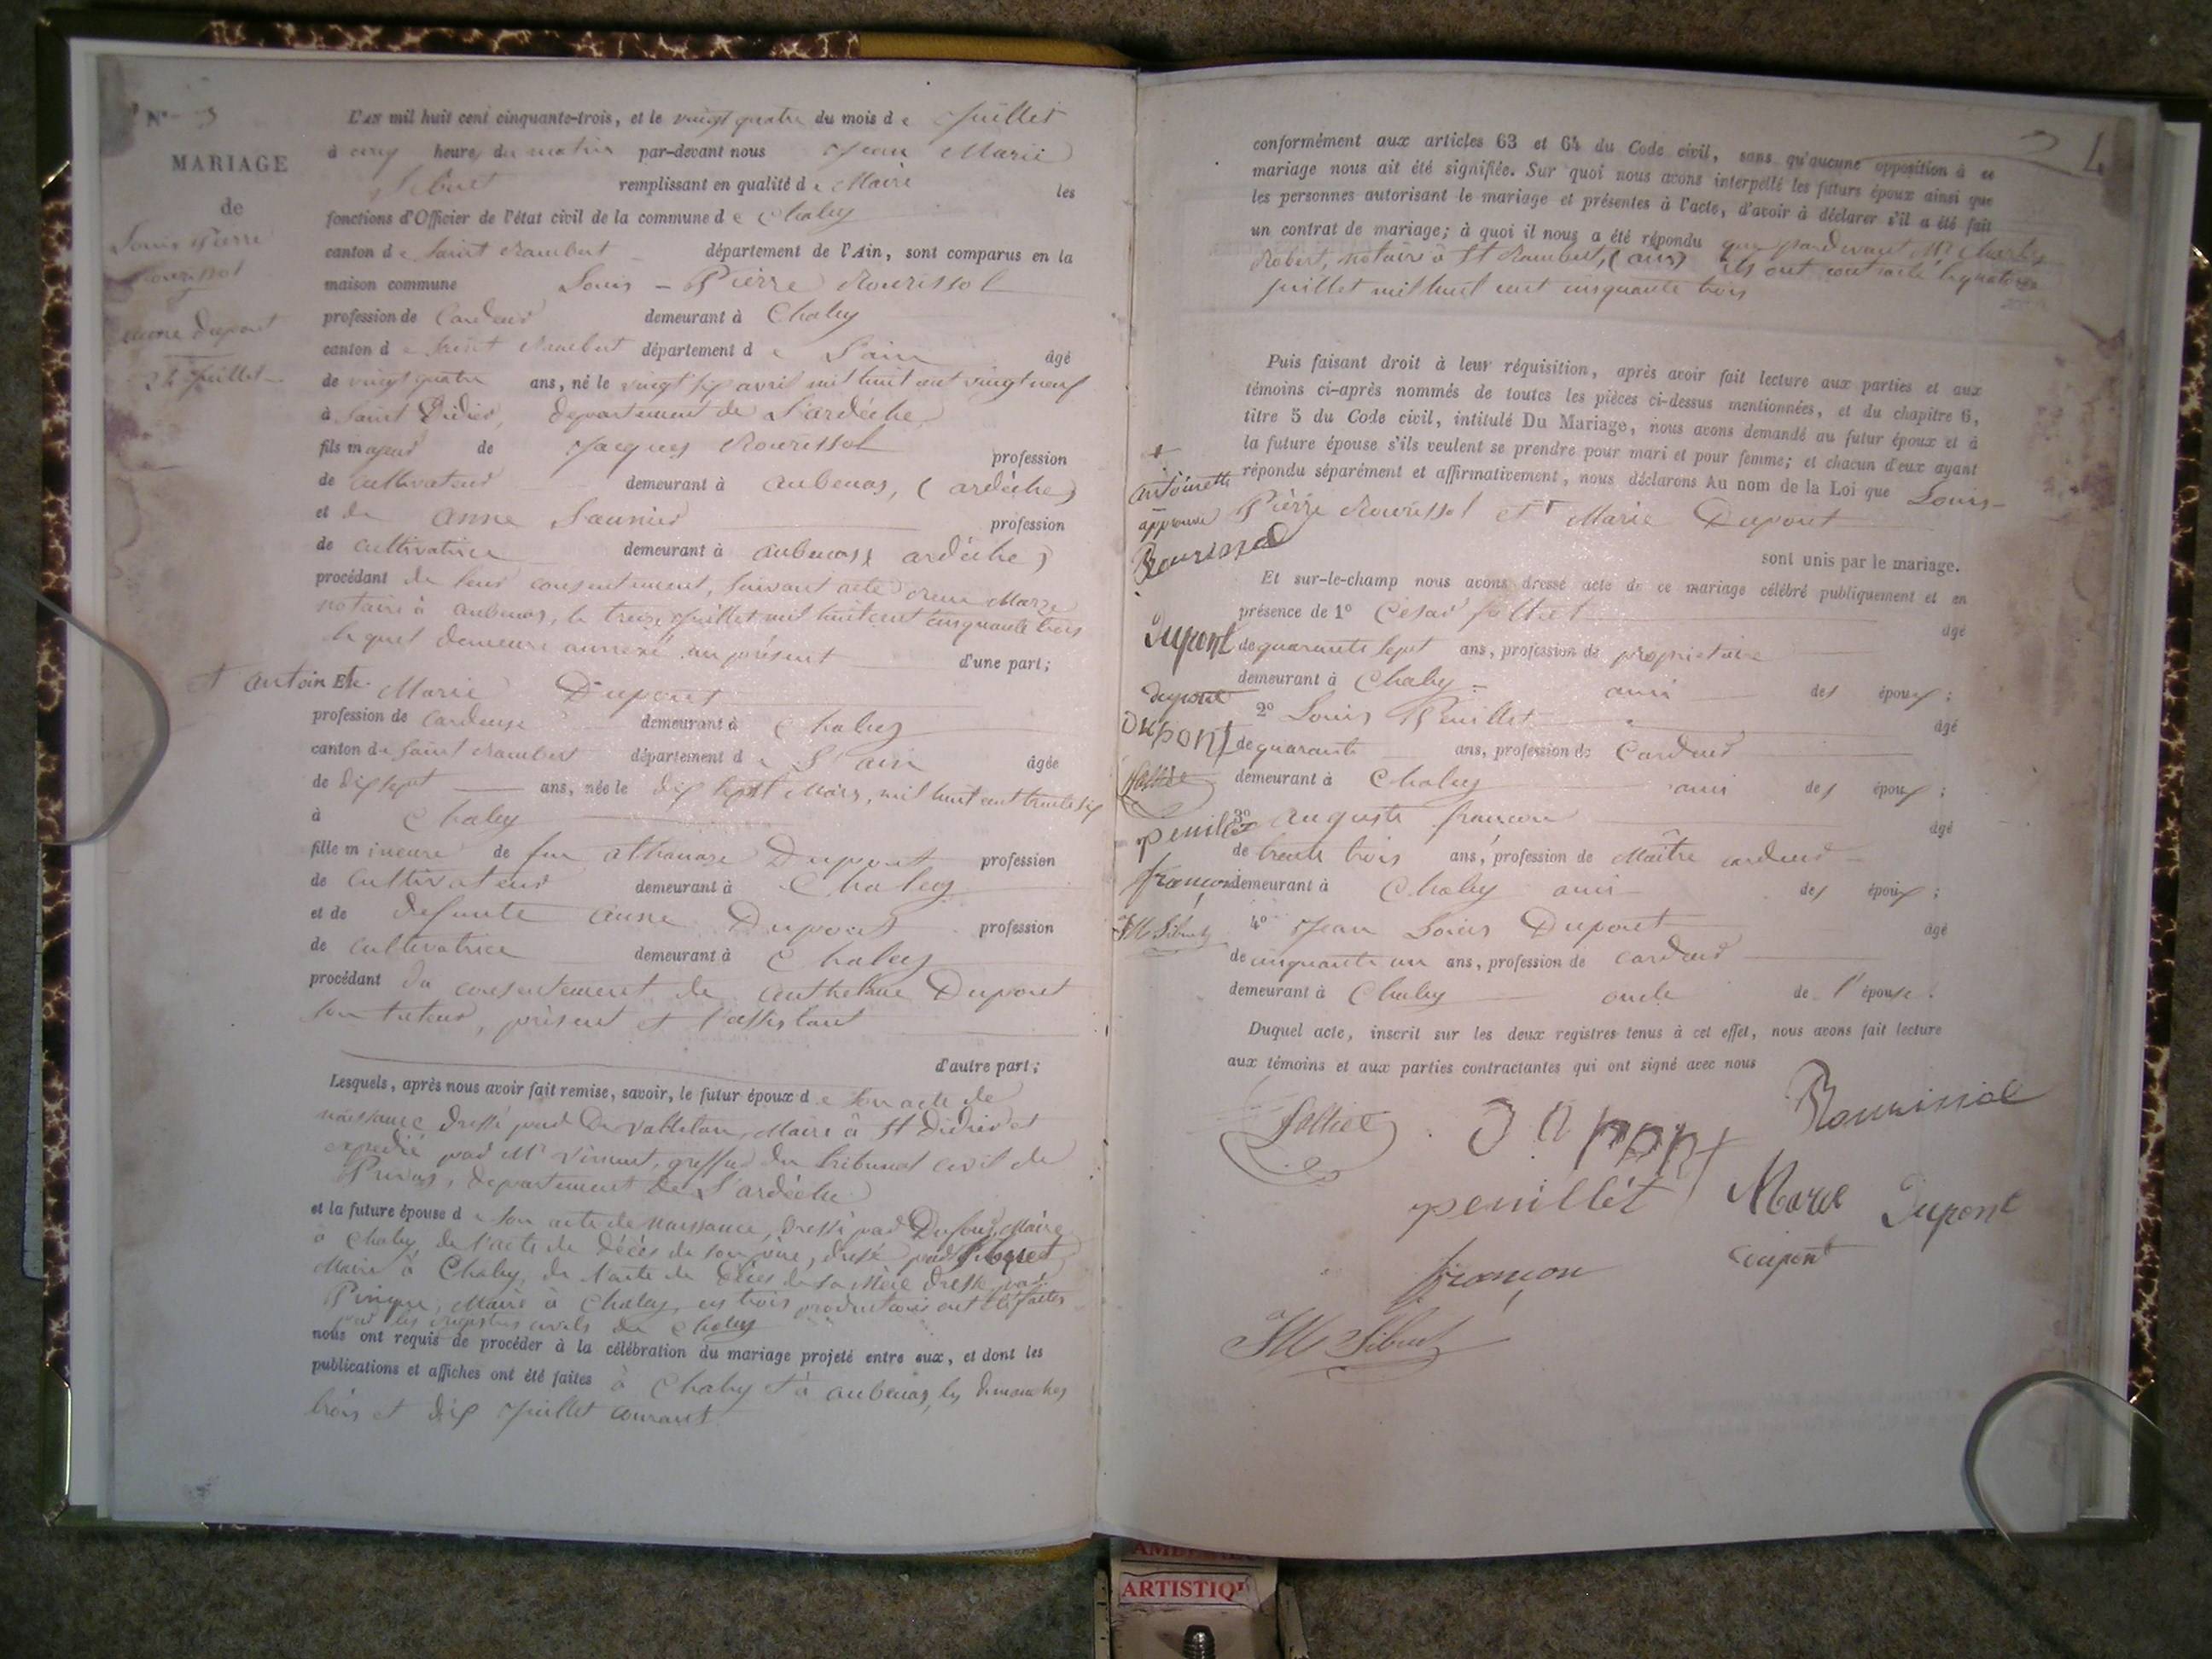 N° 3
MARIAGE
de
Louis Pierre
Rourissol
Dupont
24 Juillet
L'AN mil huit cent cinquante-trois, et le vingt quatre du mois de Juillet
à cinq heures du matin par-devant nous Jean Marie
Sibuet remplissant en qualité de Maire les
fonctions d'Officier de l'état civil de la commune de Chaley
canton de Saint Rambert département de l'Ain, sont comparus en la
maison commune Louis - Pierre Rourissol
profession de Cardeur demeurant à Chaley
canton de Saint Rambert département de L'ain âgé
de vingt quatre ans, né le vingt six avril mil huit cent vingt neuf
à Saint Didier, departement de L'ardèche,
fils majeur de Jacques Rourissol profession
de cultivateur demeurant à aubenas, (ardèche)
et de anne Saunier profession
de cultivatrice demeurant à aubenas, ardèche)
procédant de leur consentement, suivant acte
notaire à aubenas, le treize Juillet mil huit cent cinquante trois
lequel demeure annexé au présent d'une part;
et antoinette Marie Dupont
profession de cardeuse demeurant à Chaley
canton de Saint Rambert département de L'ain âgée
de dix sept ans, née le dix sept Mars, mil huit cent trente six
à Chaley
fille mineure de feu athanase Dupont profession
de cultivateur demeurant à Chaley
et de defunte anne Dupont profession
de cultivatrice demeurant à Chaley
procédant du consentement de anthelme Dupont
son tuteur, présent et l'assistant
d'autre part;
Lesquels, après nous avoir fait remise, savoir, le futur époux de son acte de
naissance dressé par Maire à St Didier et
expedié par Mr Vincent, greffier du tribunal civil de
Privas, departement de L'ardèche
et la future épouse de son acte de naissance, dressé par Dufour, Maire
à Chaley, de l'acte de décès de son père, dressé par
Maire à Chaley, de l'acte de décès de sa mère dressé par
Maire à Chaley, ces trois productions ont été faites
par les registres civils de Chaley
nous ont requis de procéder à la célébration du mariage projeté entre eux, et dont les
publications et affiches ont été faites à Chaley et à aubenas, les dimanches
trois et dix Juillet courant
4
conformément aux articles 63 et 64 du Code civil, sans qu'aucune opposition à ce
mariage nous ait été signifiée. Sur quoi nous avons interpellé les futurs époux ainsi que
les personnes autorisant le mariage et présentes à l'acte, d'avoir à déclarer s'il a été fait
un contrat de mariage; à quoi il nous a été répondu que pardevant Mr Charles
Robert, notaire à St Rambert, (ain) ils ont contracté le quatorze
juillet mil huit cent cinquante trois
Puis faisant droit à leur réquisition, après avoir fait lecture aux parties et aux
témoins ci-après nommés de toutes les pièces ci-dessus mentionnées, et du chapitre 6,
titre 5 du Code civil, intitulé Du Mariage, nous avons demandé au futur époux et à
la future épouse s'ils veulent se prendre pour mari et pour femme; et chacun d'eux ayant
répondu séparément et affirmativement, nous déclarons Au nom de la Loi que Louis-
Pierre Rourissol et + Marie Dupont
sont unis par le mariage.
+
antoinette
approuvé
Rourissol
Dupont
dupont
Dupont
peuillet
françon
JM Sibuet
Et sur-le-champ nous avons dressé acte de ce mariage célébré publiquement et en
présence de 1° Cesar Jolliet âgé
de quarante sept ans, profession de propriétaire
demeurant à Chaley ami des époux;
2° Louis Peuillet âgé
de quarante ans, profession de Cardeur
demeurant à Chaley ami des époux;
3° auguste françon âgé
de trente trois ans, profession de Maître cardeur
demeurant à Chaley ami des époux;
4° Jean Louis Dupont âgé
de cinquante un ans, profession de cardeur
demeurant à Chaley oncle de l'épouse.
Duquel acte, inscrit sur les deux registres tenus à cet effet, nous avons fait lecture
aux témoins et aux parties contractantes qui ont signé avec nous
Jolliet Dupont Rourissol
peuillét Morel Dupont
françon dupont
JM Sibuet
ARTISTIQU